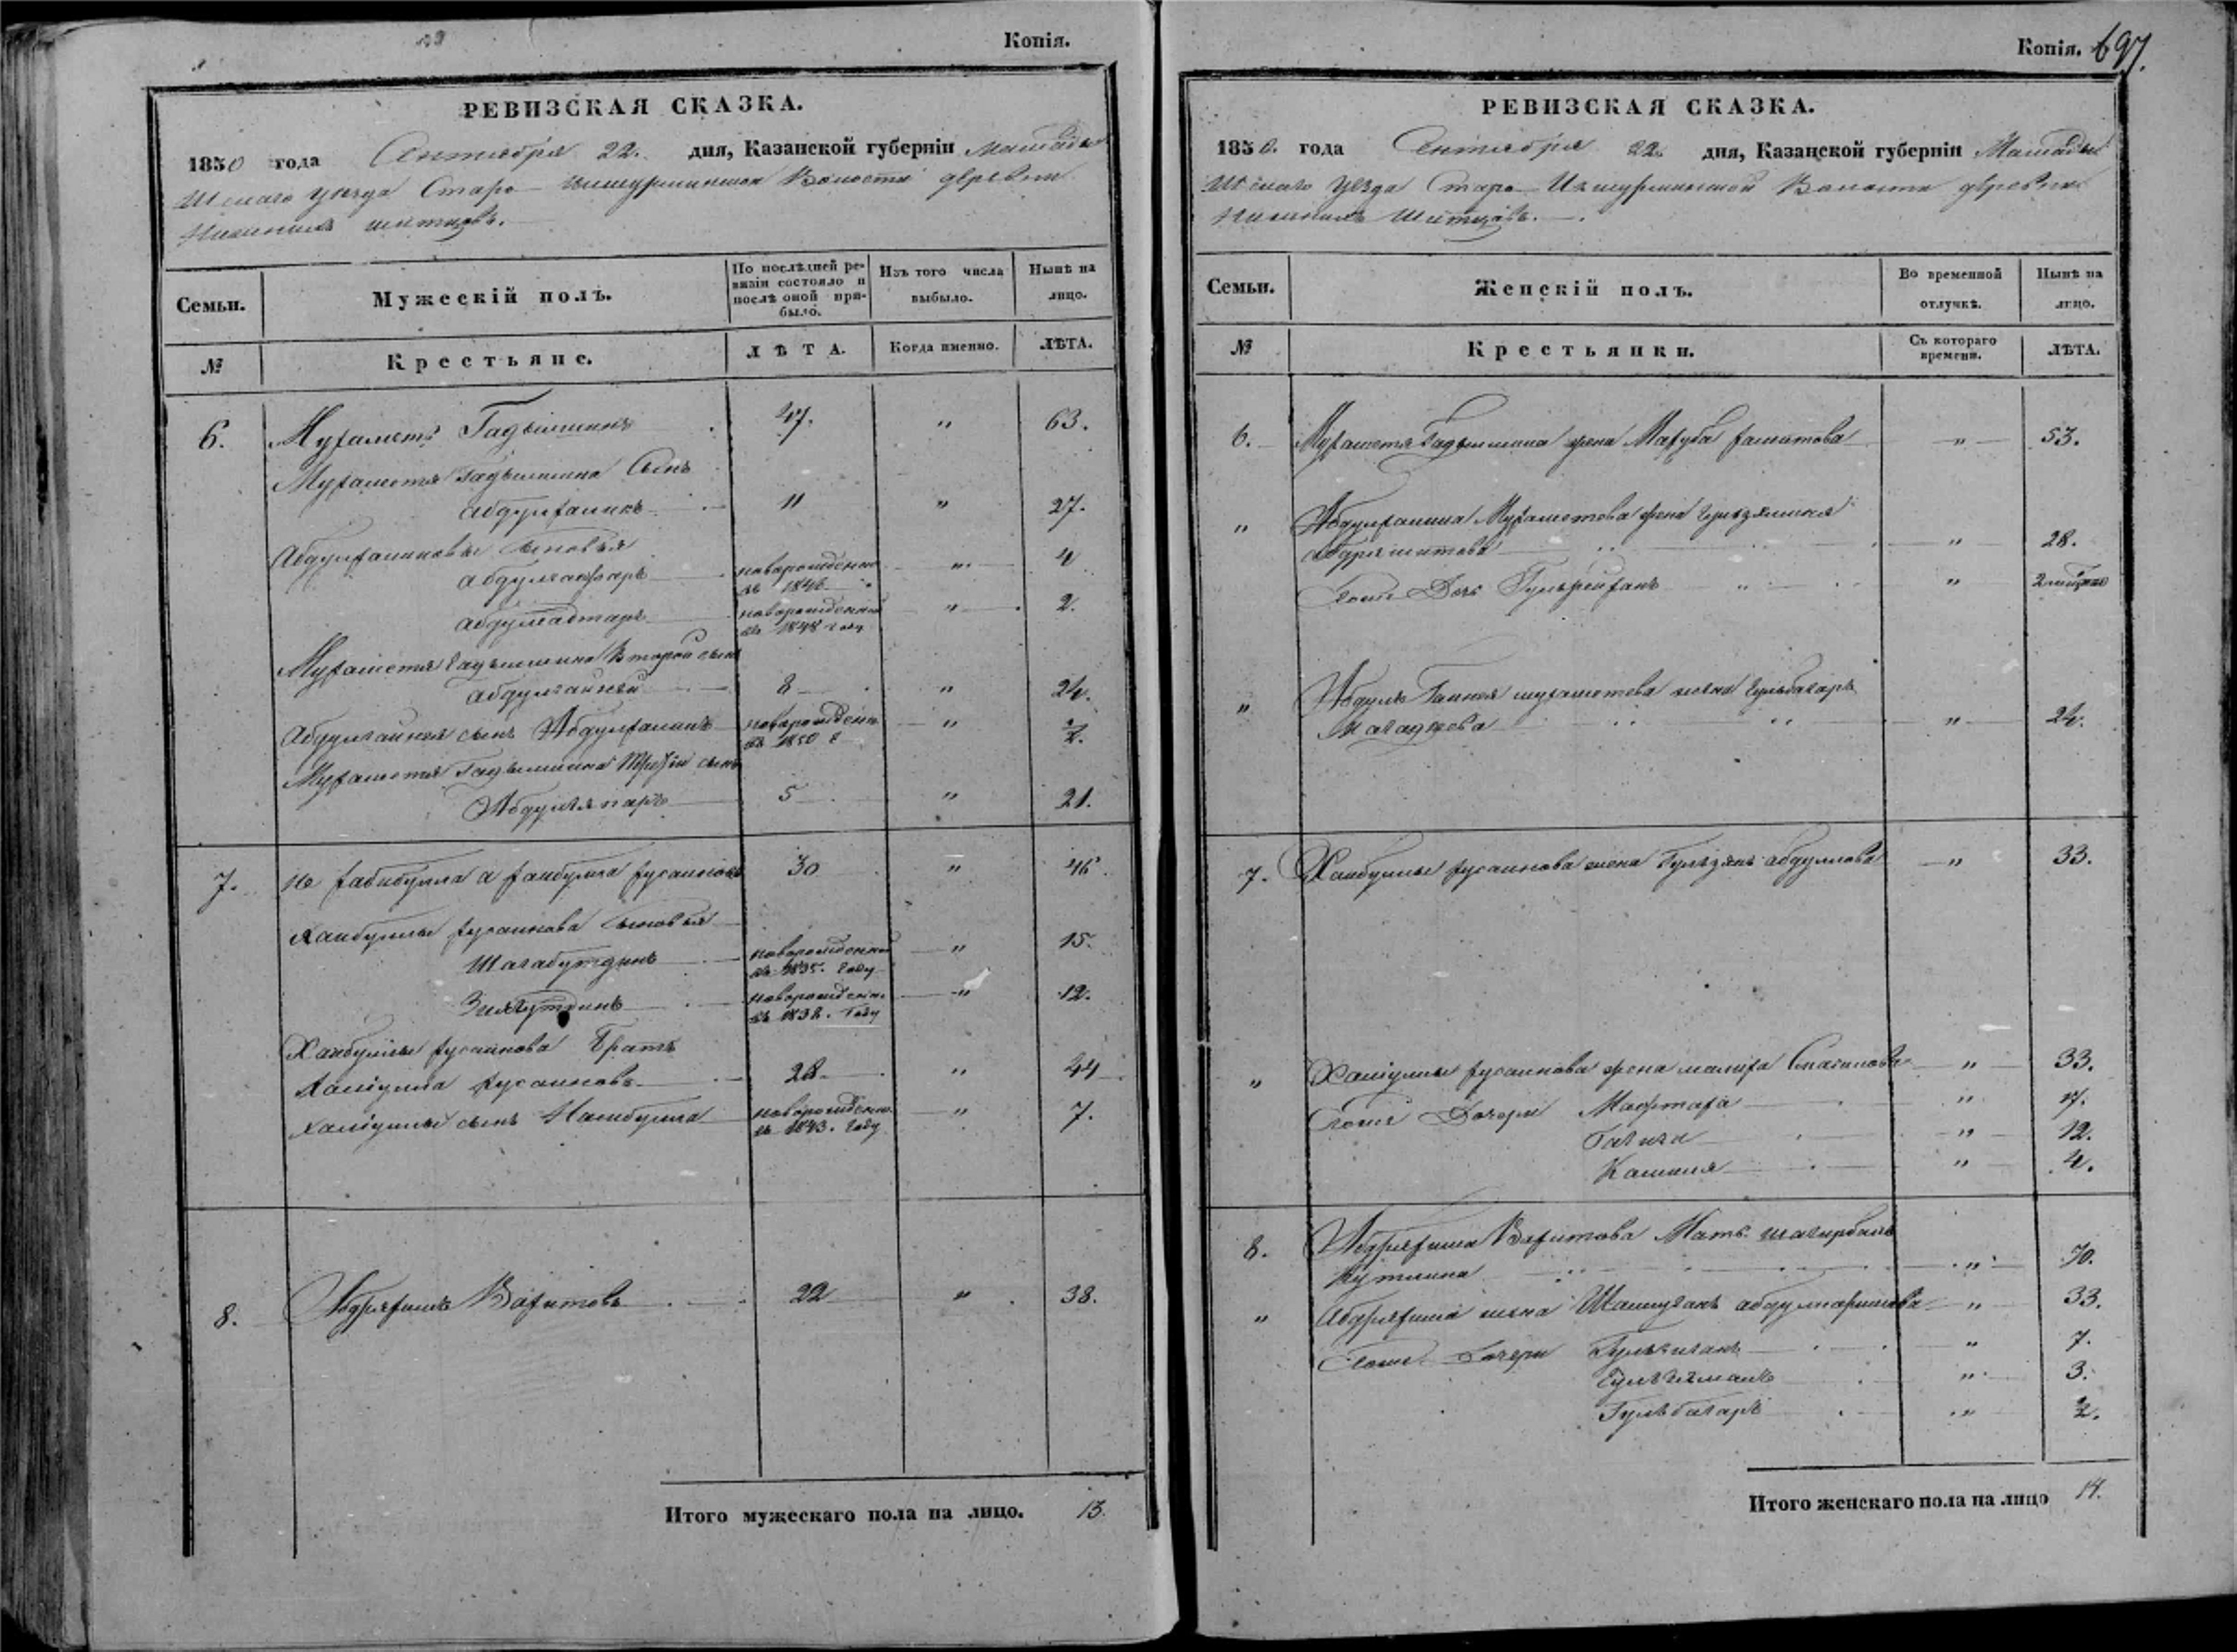 Копія.
РЕВИЗСКАЯ СКАЗКА.
1850 года Сентября 22. дня, Казанской губерніи Мамадыш
шскаго уѣзда Старо Икшурминской Волости деревни
Нижнихъ шитцовъ.
Семьи.
Мужескій полъ.
По послѣдней ре-
визіи состояло и
послѣ оной при-
было.
Изъ того числа
выбыло.
Нынѣ на
лицо.
№
Крестьяне.
ЛѢТА.
Когда именно.
ЛѢТА.
6. Мухаметъ Гадыльшинъ 47. " 63.
Мухаметя Гадыльшина Сынъ
абдулхаликъ 11 " 27.
Абдулхаликовы сыновья
абдулгафаръ новорожденный " 4
въ 1846
абдулсаттаръ новорожденный " 2.
въ 1848 году
Мухаметя Гадыльшина Второй сынъ
абдулганей 8 " 24.
Абдулганея сынъ Абдулхаланъ новорожденъ " 1/2.
въ 1850 г
Мухаметя Гадыльшина Третій сынъ
Абдулзяпаръ 5 " 21.
7. Не хабибулла а хаибулла хусаиновъ 30 " 46.
Хаибуллы хусаинова сыновья
Шагабутдинъ новорожденный " 15.
въ 1835. году
Зиявутдинъ новорожден " 12.
въ 1838. году
Хаибуллы хусаинова Братъ
Халиулла хусаиновъ 28. " 44
Халиуллы сынъ Нагибулла новорожден " 7.
въ 1843. году
8. Абдряхимъ Вахитовъ 22 " 38.
Итого мужескаго пола на лицо. 13.
Копія. 697.
РЕВИЗСКАЯ СКАЗКА.
1850. года Сентября 22 дня, Казанской губерніи Мамадыш
шскаго уѣзда Старо Икшурминской Волости деревни
Нижнихъ Шитцовъ.
Семьи.
Женскій полъ.
Во временной
отлучкѣ.
Нынѣ на
лицо.
№
Крестьянки.
Съ котораго
времени.
ЛѢТА.
6. Мухаметя Гадыльшина жена Махуба хамитова " 53.
" Абдулхалика Мухаметова жена Гульзямиля
абдряшитова " 28.
Ихъ Дочь Гульжихянъ "
" Абдулъ Ганнея мухаметова жена Гульбагаръ
Магадеева " 24.
7. Хаибуллы хусаинова жена Гульзянъ абдуллова " 33.
" Халиуллы хусаинова жена малиха Смагилова " 33.
Ихъ Дочери Мафтаха " 17.
Гагиза " 12.
Камиля " 4.
8. Абдряхима Вахитова Мать шагирбанъ
Кутлина " 70.
" Абдряхима жена Шамсуганъ абдулкаримова " 33.
Ихъ Дочери Гульгиганъ " 7.
Гульчеманъ " 3.
Гульбагаръ " 1/2.
Итого женскаго пола на лицо 14.